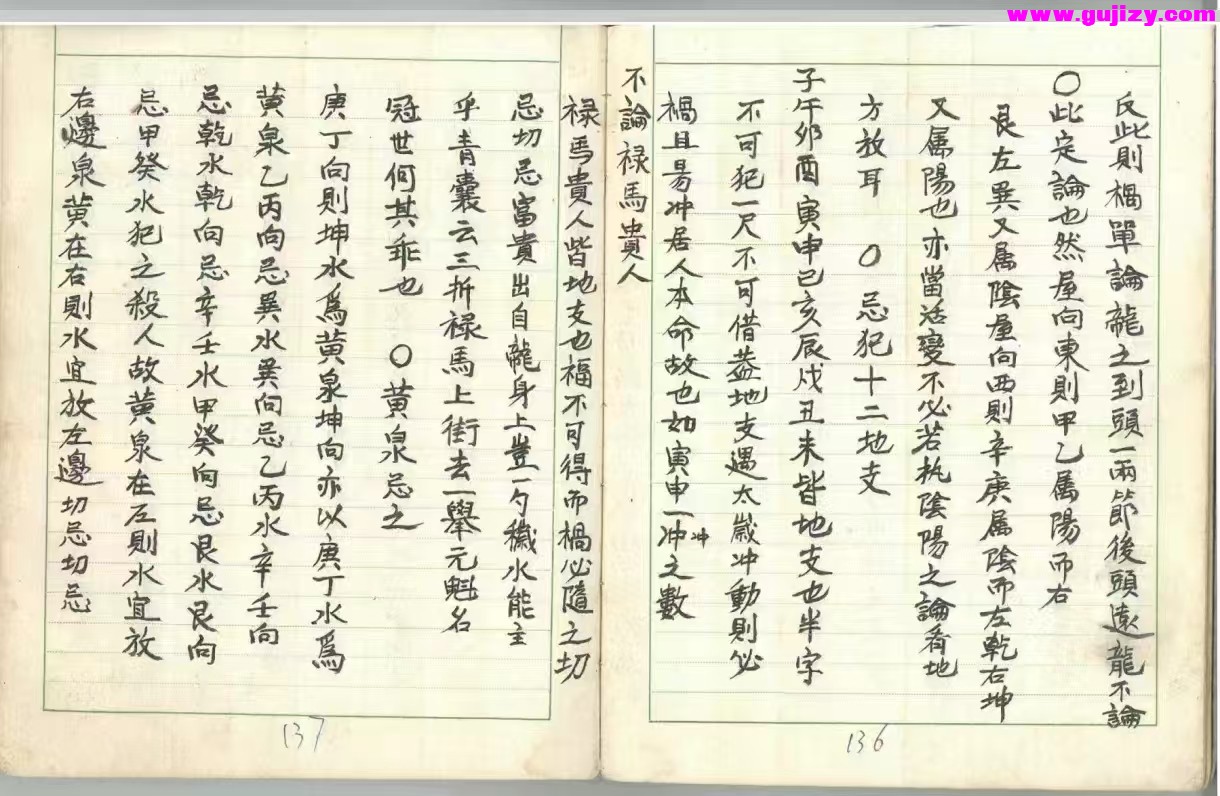 www.gujizy.com
反此則禍單論龍之到頭一兩節後頭遠龍不論
〇此定論也然屋向東則甲乙属陽而右
艮左巽又属陰屋向西則辛庚属陰而左乾右坤
又属陽也亦當活變不必若执陰陽之論看地
方放耳　〇忌犯十二地支
子午卯酉寅申巳亥辰戌丑未皆地支也半字
不可犯一尺不可借盖地支遇太歲冲動則必
禍且易冲居人本命故也如寅申一冲之數
冲
不論禄馬貴人
禄馬貴人皆地支也福不可得而禍必隨之切
忌切忌富貴出自龍身上豈一勺穢水能主
乎青囊云三折禄馬上街去一舉元魁名
冠世何其乖也　〇黄泉忌之
庚丁向則坤水爲黄泉坤向亦以庚丁水爲
黄泉乙丙向忌巽水巽向忌乙丙水辛壬向
忌乾水乾向忌辛壬水甲癸向忌艮水艮向
忌甲癸水犯之殺人故黄泉在左則水宜放
右邊泉黄在右則水宜放左邊切忌切忌
137
136